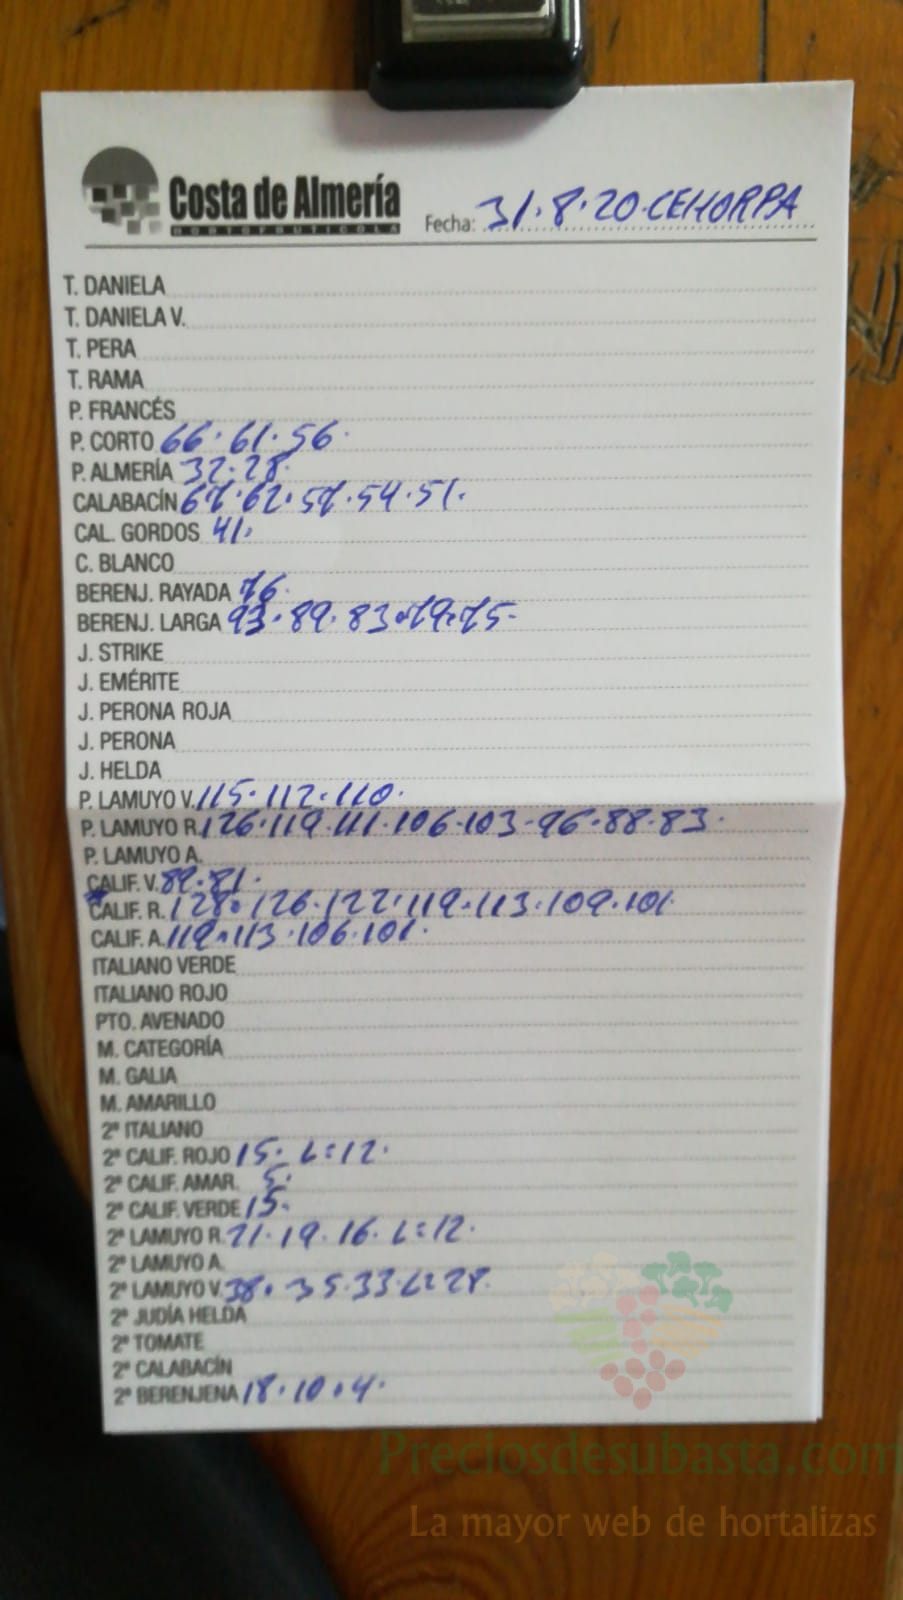 Costa de Almería
HORTOFRUTICOLA
Fecha: 31.8.20.CEHORPA
T. DANIELA
T. DANIELA V.
T. PERA
T. RAMA
P. FRANCÉS
P. CORTO 66.61.56.
P. ALMERÍA 32.28.
CALABACÍN 67.62.57.54.51.
CAL. GORDOS 41.
C. BLANCO
BERENJ. RAYADA 76.
BERENJ. LARGA 93.89.83.79.75.
J. STRIKE
J. EMÉRITE
J. PERONA ROJA
J. PERONA
J. HELDA
P. LAMUYO V. 115.112.110.
P. LAMUYO R. 126.119.111.106.103.96.88.83.
P. LAMUYO A.
CALIF. V. 89.81.
CALIF. R. 128.126.122.119.113.109.101
CALIF. A. 119.113.106.101.
ITALIANO VERDE
ITALIANO ROJO
PTO. AVENADO
M. CATEGORÍA
M. GALIA
M. AMARILLO
2ª ITALIANO
2ª CALIF. ROJO 15. L=12.
2ª CALIF. AMAR. 5.
2ª CALIF. VERDE 15.
2ª LAMUYO R. 21.19.16. L=12.
2ª LAMUYO A.
2ª LAMUYO V. 38.35.33.L=28.
2ª JUDÍA HELDA
2ª TOMATE
2ª CALABACÍN
2ª BERENJENA 18.10.4.
Preciosdesubasta.com
La mayor web de hortalizas